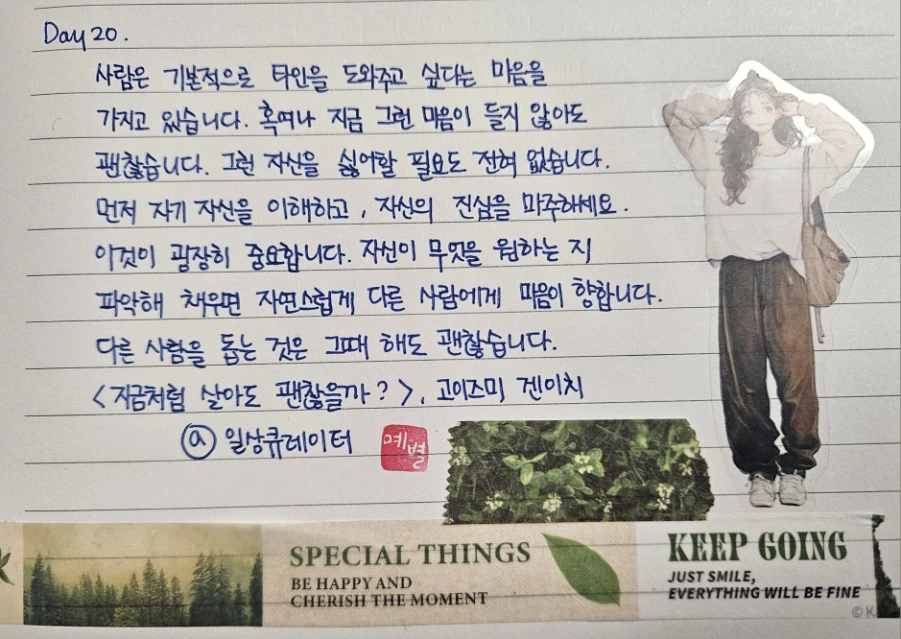 Day 20.
사람은 기본적으로 타인을 도와주고 싶다는 마음을
가지고 있습니다. 혹여나 지금 그런 마음이 들지 않아도
괜찮습니다. 그런 자신을 싫어할 필요도 전혀 없습니다.
먼저 자기 자신을 이해하고, 자신의 진심을 마주하세요.
이것이 굉장히 중요합니다. 자신이 무엇을 원하는 지
파악해 채우면 자연스럽게 다른 사람에게 마음이 향합니다.
다른 사람을 돕는 것은 그때 해도 괜찮습니다.
<지금처럼 살아도 괜찮을까?>, 고이즈미 겐이치
@ 일상큐레이터 예별
SPECIAL THINGS
BE HAPPY AND
CHERISH THE MOMENT
KEEP GOING
JUST SMILE,
EVERYTHING WILL BE FINE